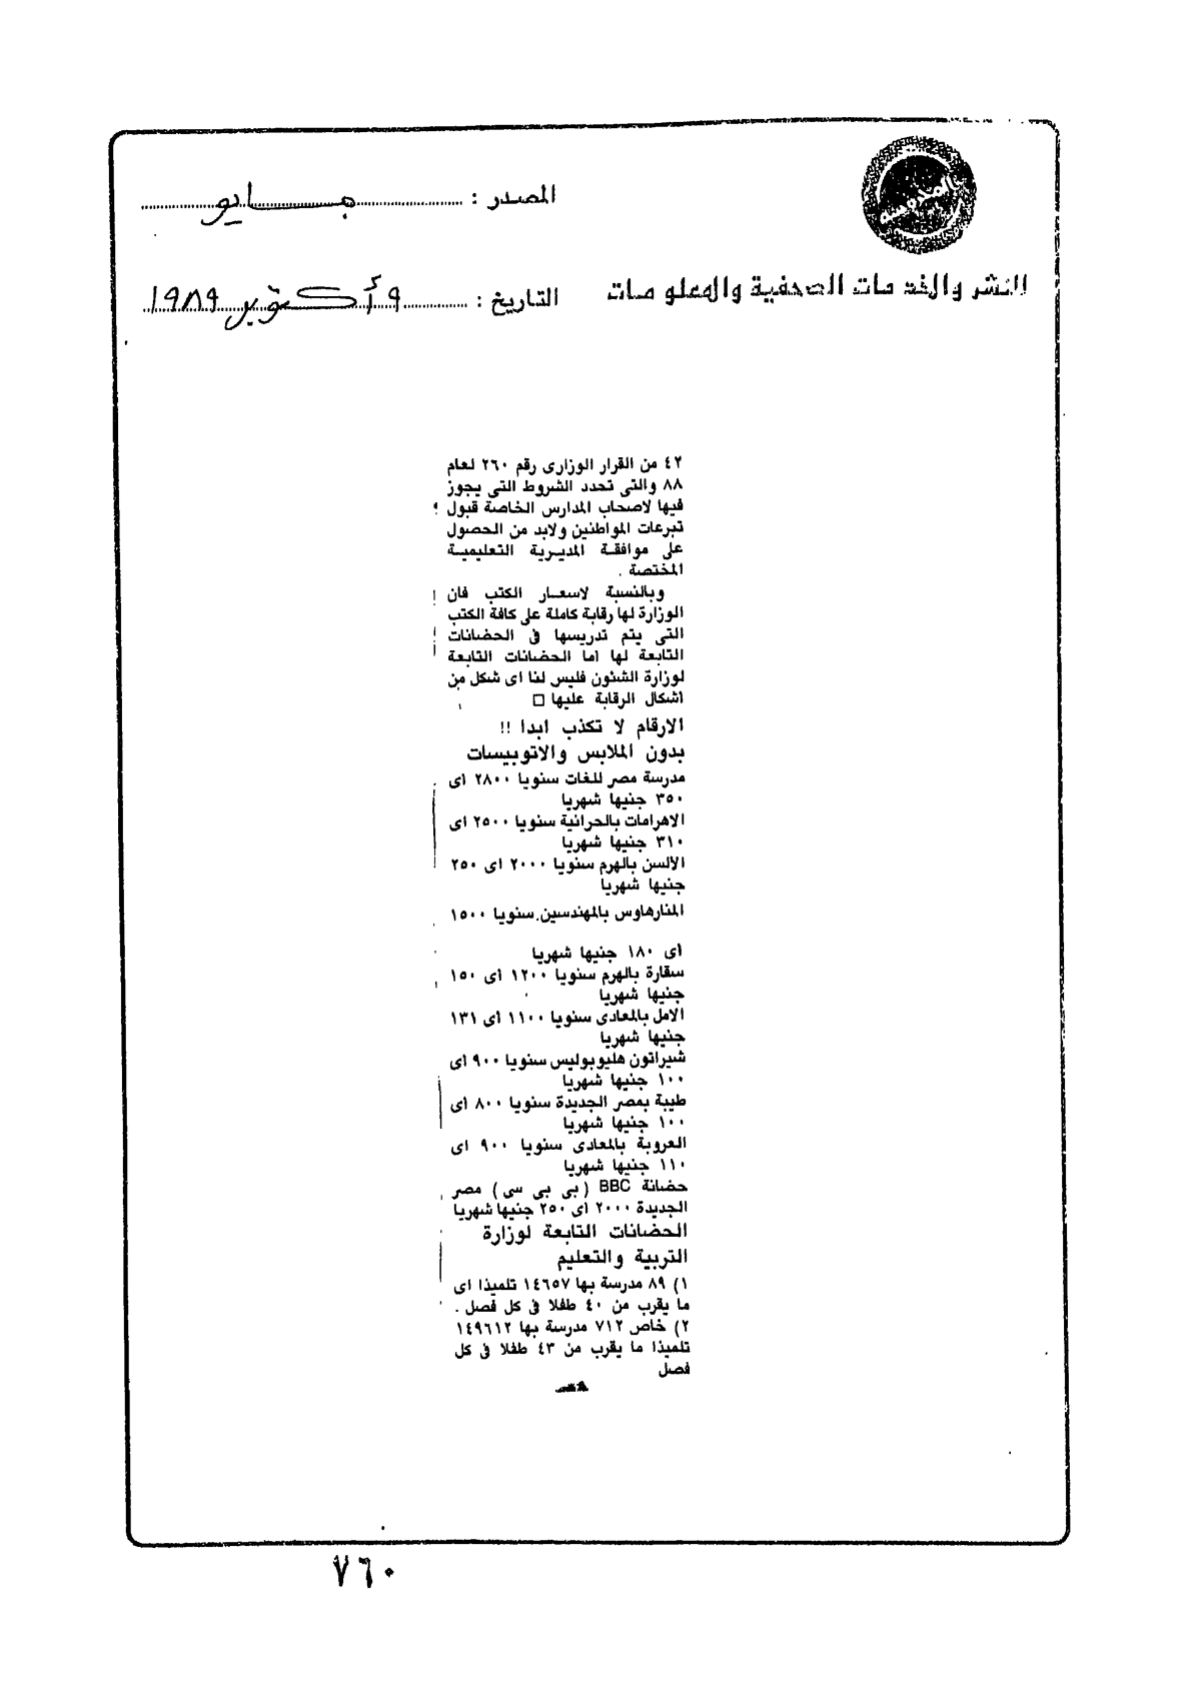 المصدر : مايو
للنشر والخدمات الصحفية والمعلومات
التاريخ : ٩ أكتوبر ١٩٨٩
٤٢ من القرار الوزارى رقم ٢٦٠ لعام
٨٨ والتى تحدد الشروط التى يجوز
فيها لاصحاب المدارس الخاصة قبول
تبرعات المواطنين ولابد من الحصول
على موافقة المديرية التعليمية
المختصة .
وبالنسبة لاسعار الكتب فان
الوزارة لها رقابة كاملة على كافة الكتب
التى يتم تدريسها فى الحضانات
التابعة لها اما الحضانات التابعة
لوزارة الشئون فليس لنا اى شكل من
اشكال الرقابة عليها □
الارقام لا تكذب ابدا !!
بدون الملابس والاتوبيسات
مدرسة مصر للغات سنويا ٢٨٠٠ اى
٣٥٠ جنيها شهريا
الاهرامات بالحرانية سنويا ٢٥٠٠ اى
٣١٠ جنيها شهريا
الالسن بالهرم سنويا ٢٠٠٠ اى ٢٥٠
جنيها شهريا
المنارهاوس بالمهندسين سنويا ١٥٠٠
اى ١٨٠ جنيها شهريا
سقارة بالهرم سنويا ١٢٠٠ اى ١٥٠
جنيها شهريا
الامل بالمعادى سنويا ١١٠٠ اى ١٣١
جنيها شهريا
شيراتون هليوبوليس سنويا ٩٠٠ اى
١٠٠ جنيها شهريا
طيبة بمصر الجديدة سنويا ٨٠٠ اى
١٠٠ جنيها شهريا
العروبة بالمعادى سنويا ٩٠٠ اى
١١٠ جنيها شهريا
حضانة BBC (بى بى سى) مصر
الجديدة ٢٠٠٠ اى ٢٥٠ جنيها شهريا
الحضانات التابعة لوزارة
التربية والتعليم
١) ٨٩ مدرسة بها ١٤٦٥٧ تلميذا اى
ما يقرب من ٤٠ طفلا فى كل فصل .
٢) خاص ٧١٢ مدرسة بها ١٤٩٦١٢
تلميذا ما يقرب من ٤٣ طفلا فى كل
فصل
٧٦٠